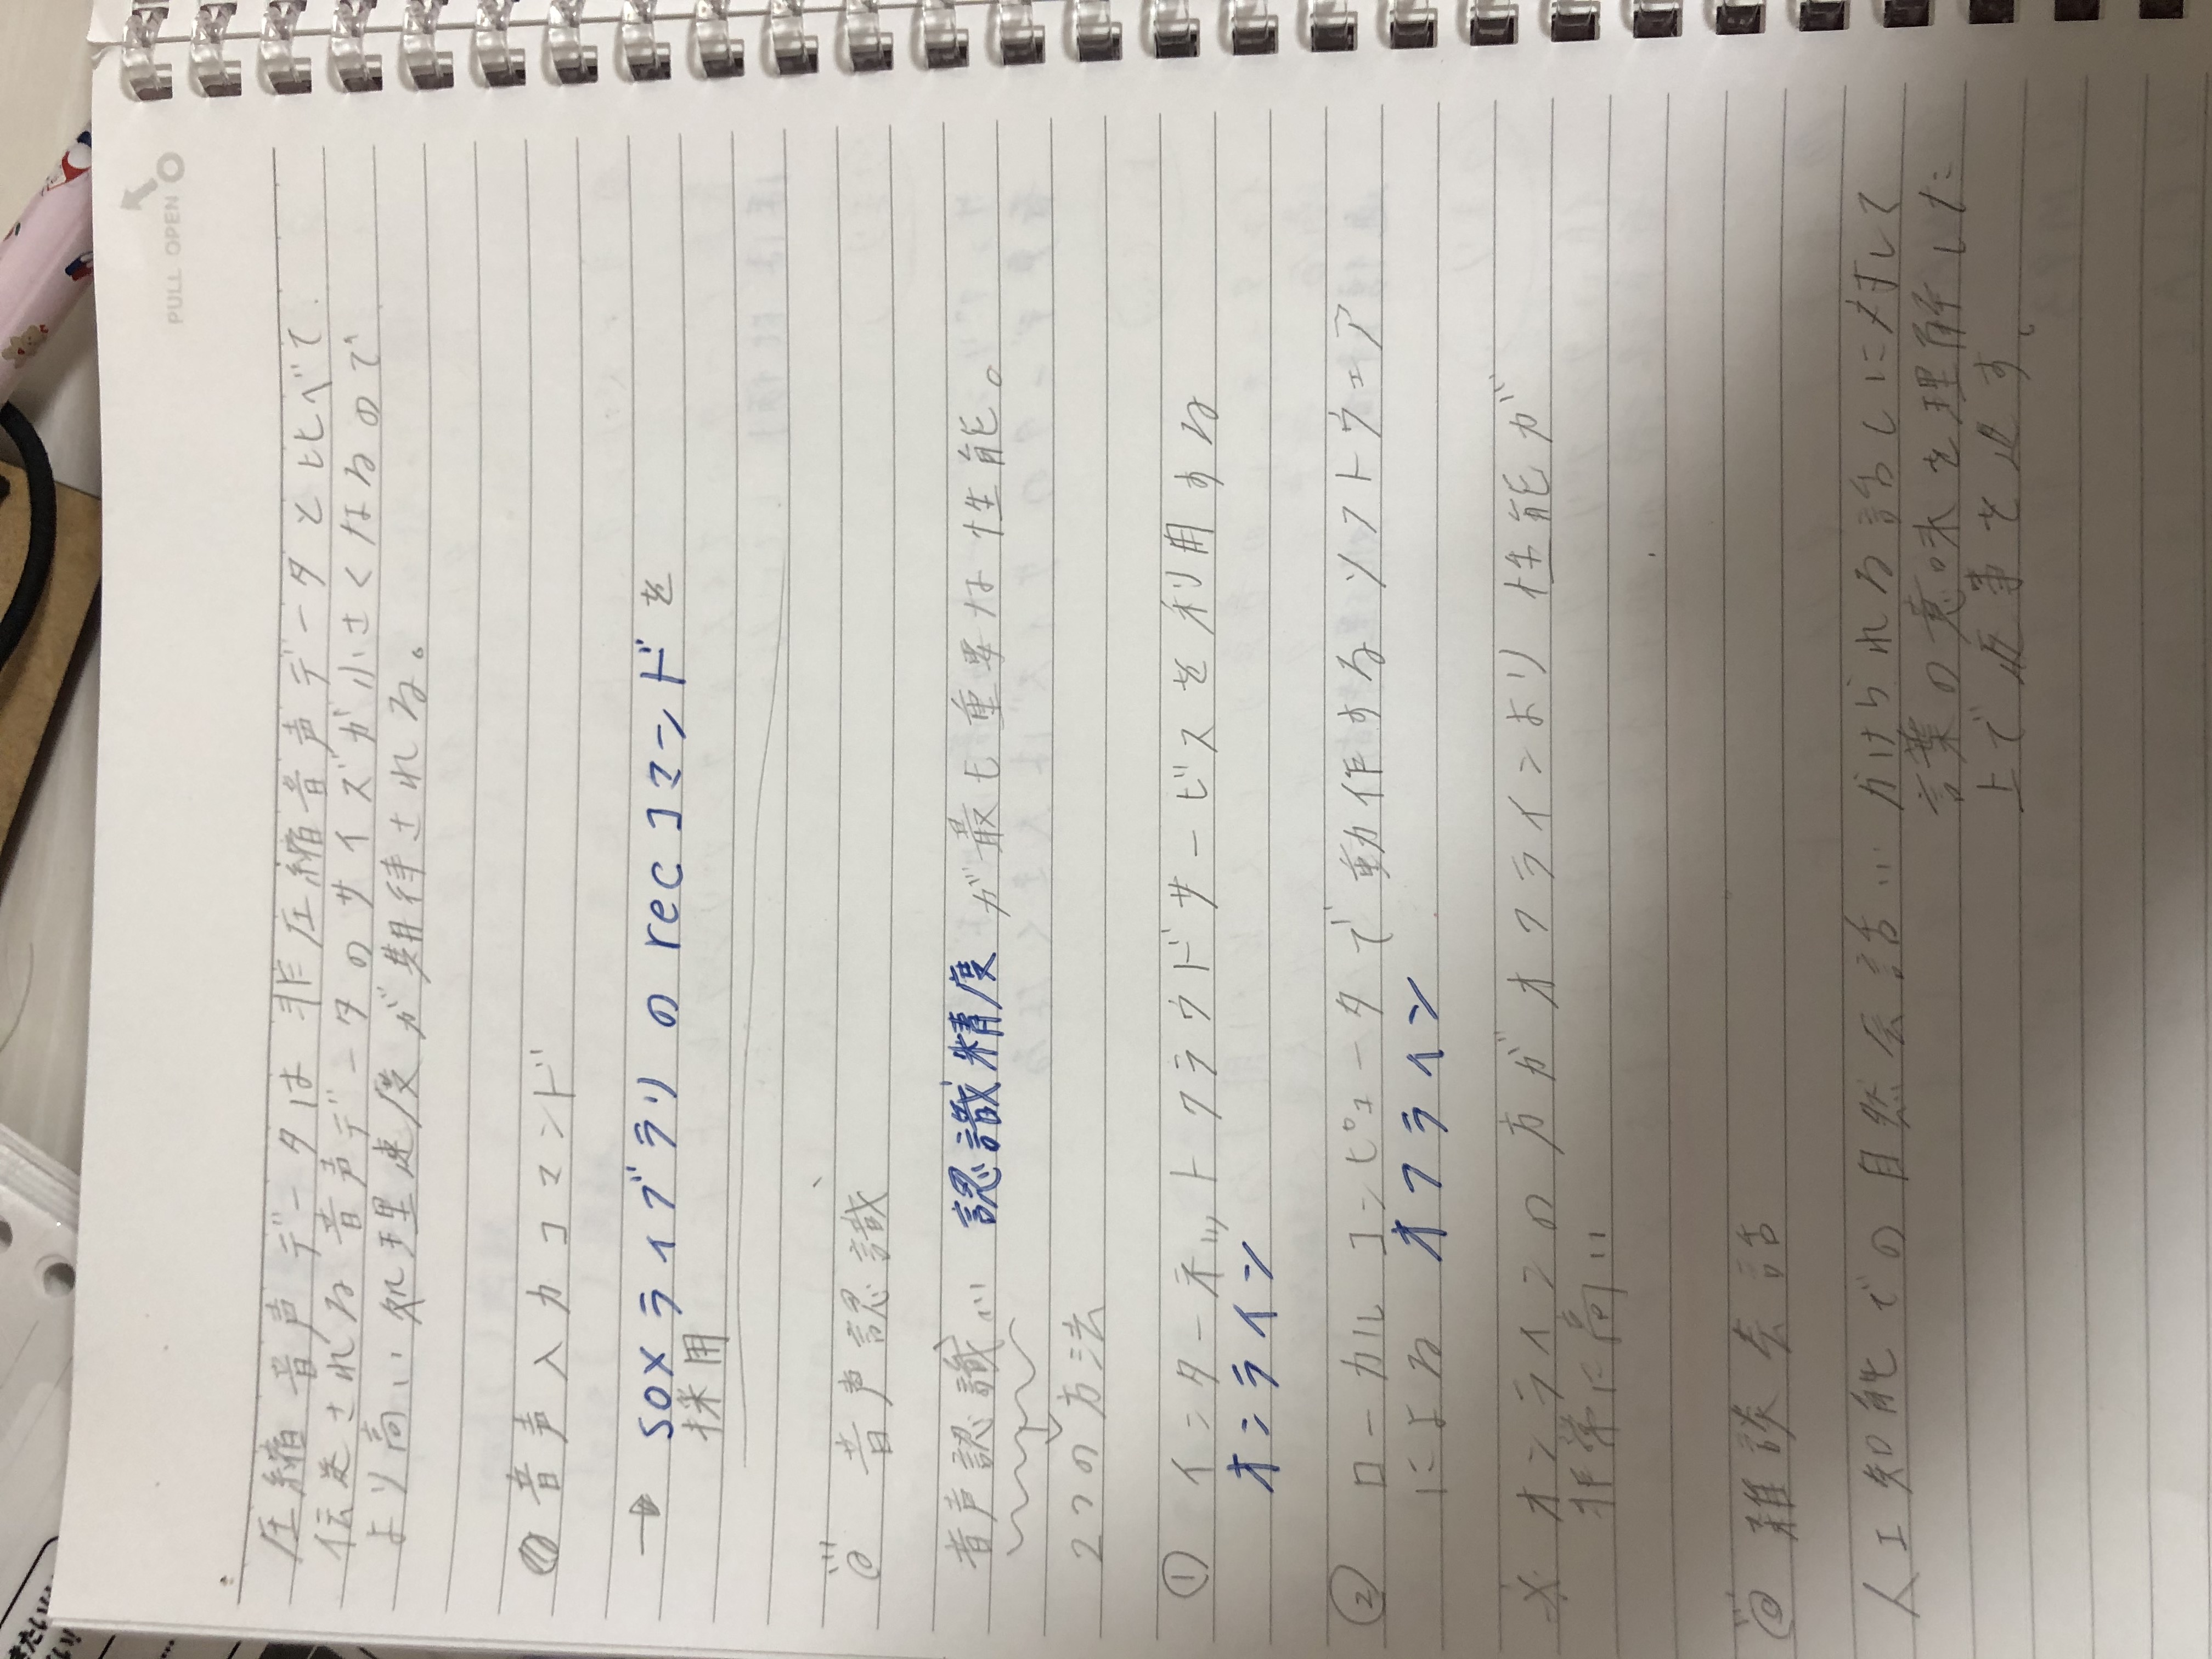 きたいい
い!
PULL OPEN
圧縮音声データは非圧縮音声データと比べて
伝送される音声データのサイズが小さくなるので
より高い処理速度が期待される。
音声入力コマンド
→ soxライブラリのrecコマンドを
採用
◎ 音声認識
音声認識… 認識精度が最も重要な性能。
↓
2つの方法
① インターネットクラウドサービスを利用する
オンライン
② ローカルコンピュータで動作するソフトウェア
による オフライン
※ オンラインの方がオフラインより性能が
非常に高い
◎ 雑談会話
人工知能での自然会話… かけられる話しに対して
言葉の意味を理解した
上で返事を返す。